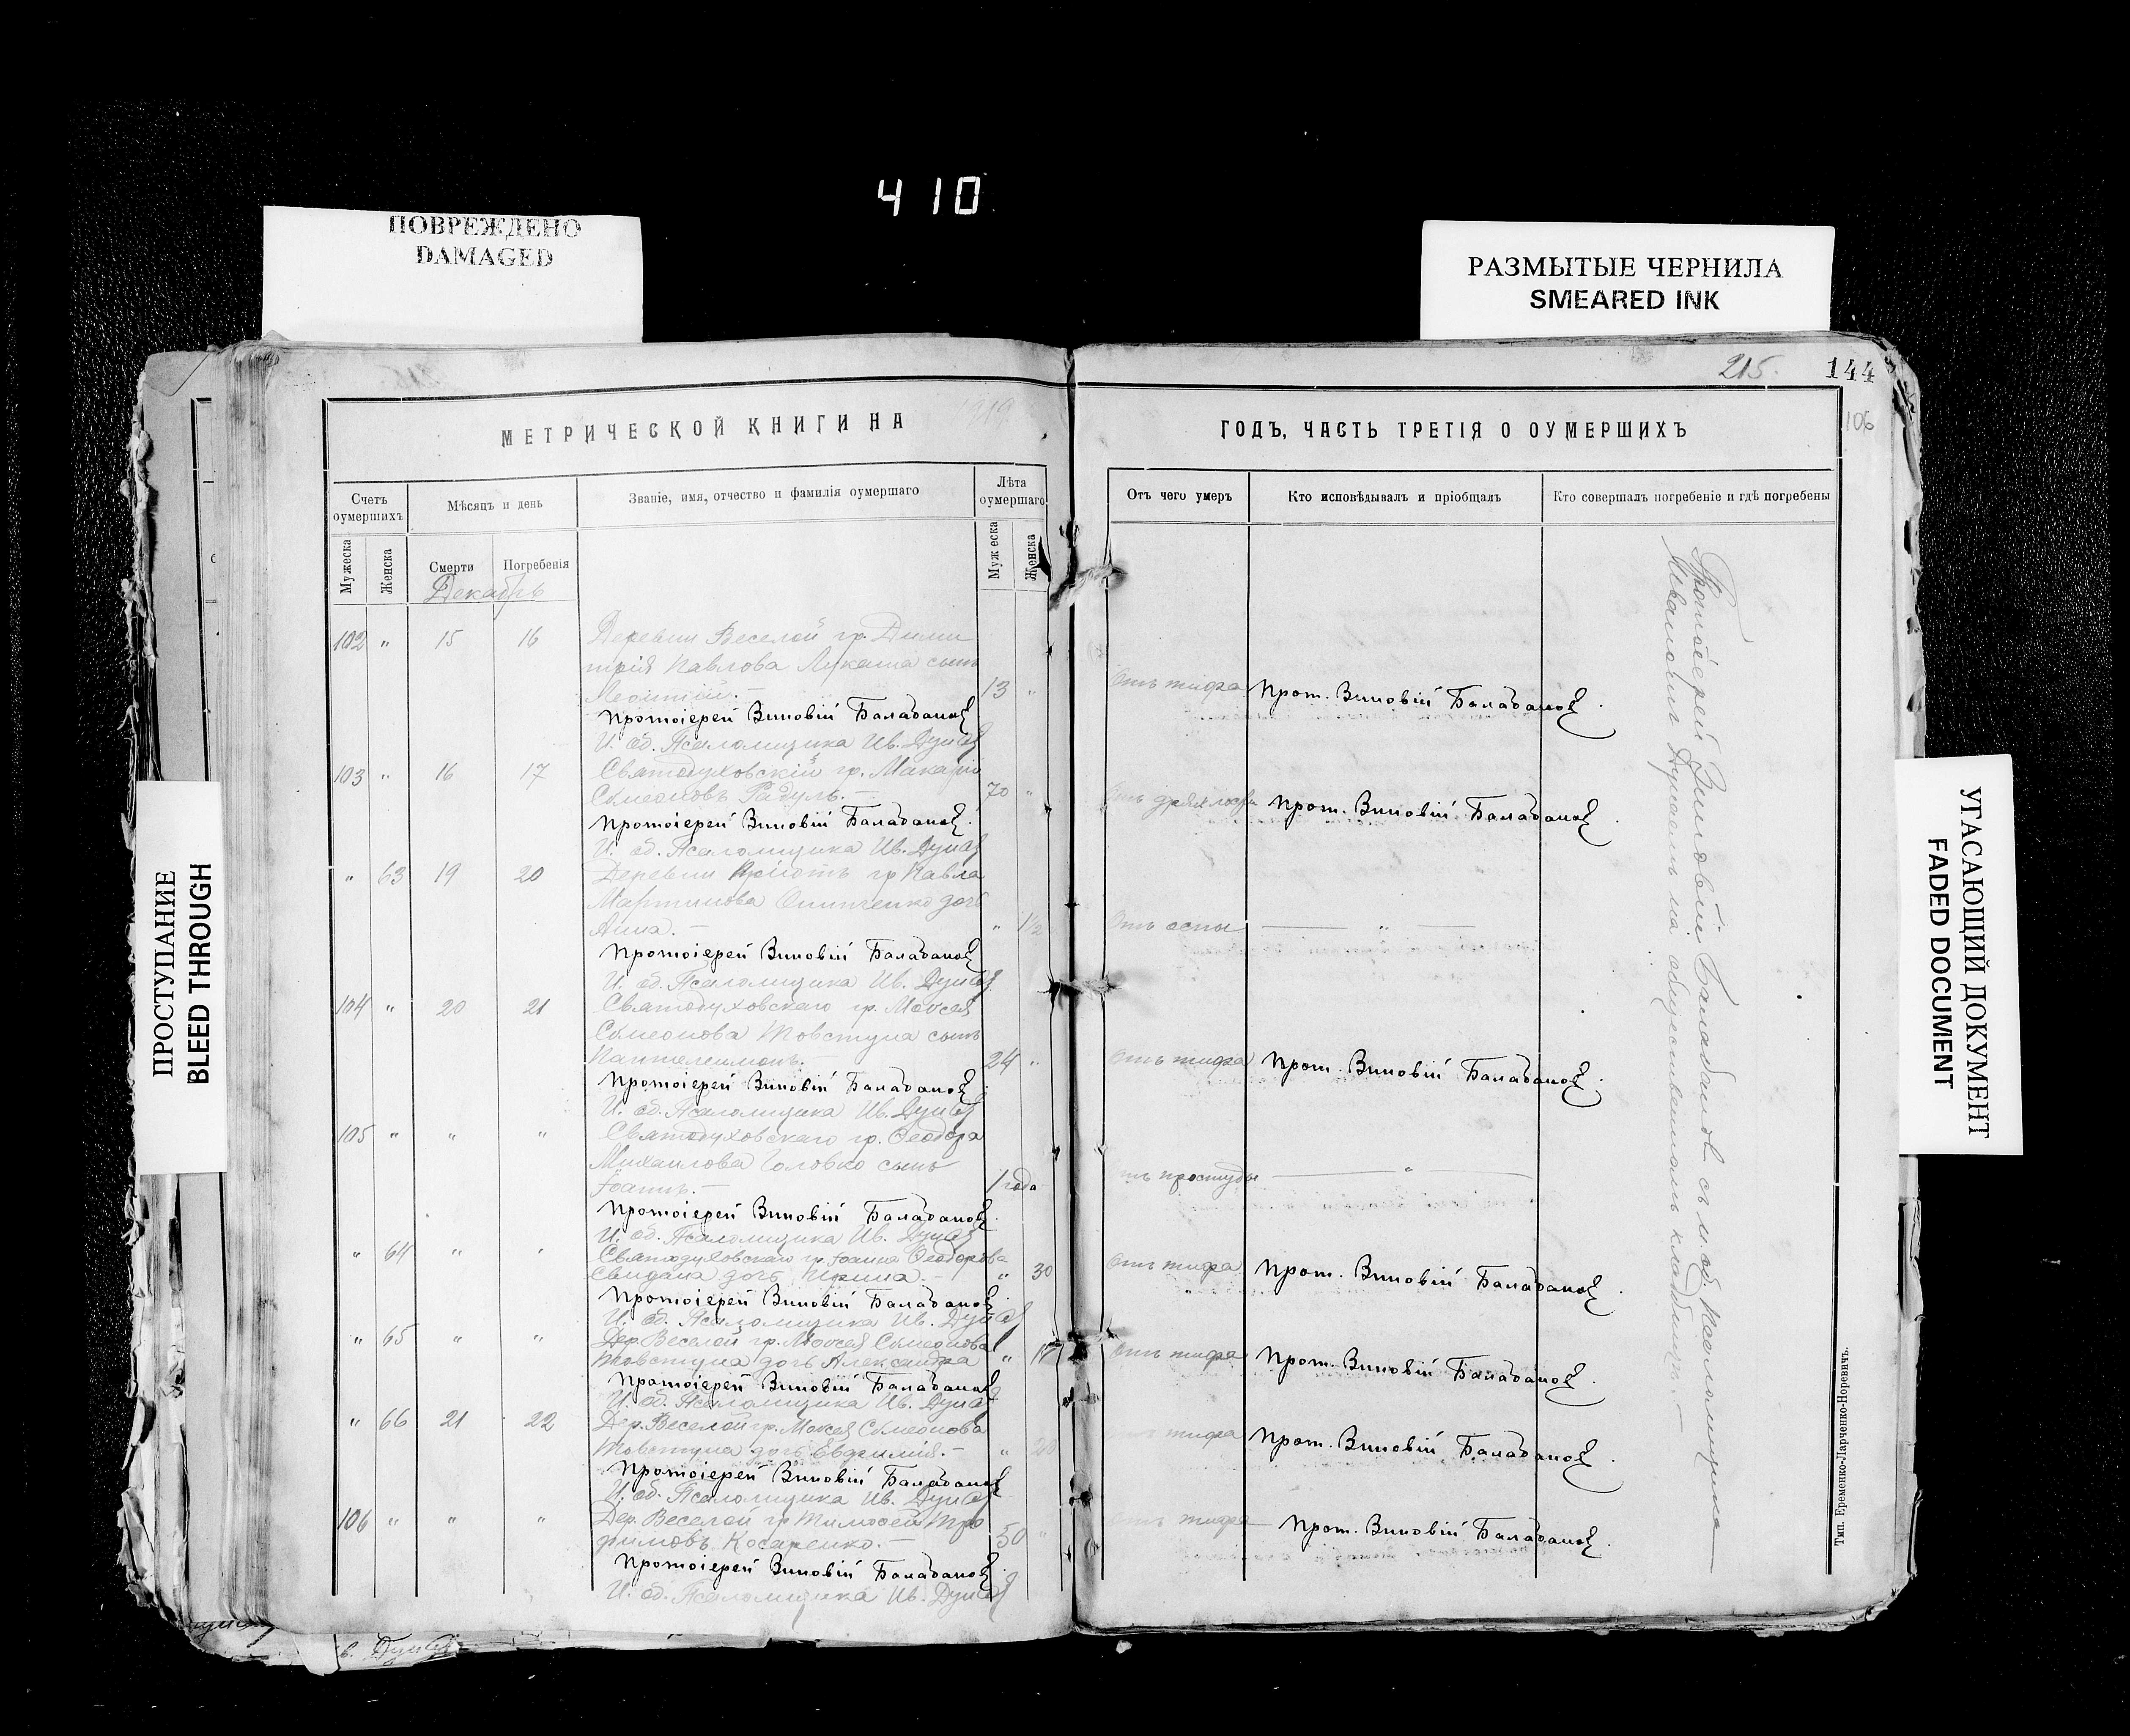 410
ПОВРЕЖДЕНО
DAMAGED
РАЗМЫТЫЕ ЧЕРНИЛА
SMEARED INK
ПРОСТУПАНИЕ
BLEED THROUGH
УГАСАЮЩИЙ ДОКУМЕНТ
FADED DOCUMENT
215.
144
106
МЕТРИЧЕСКОЙ КНИГИ НА
1919
ГОДЪ, ЧАСТЬ ТРЕТІЯ О ОУМЕРШИХЪ
Счетъ оумершихъ
Мѣсяцъ и день
Званіе, имя, отчество и фамилія оумершаго
Лѣта оумершаго
Отъ чего умеръ
Кто исповѣдывалъ и пріобщалъ
Кто совершалъ погребеніе и гдѣ погребены
Мужеска
Женска
Смерти
Погребенія
Муж еска
Женска
Декабрь
102 „ 15 16 Деревни Веселой гр. Дими
трія Павлова Лукаша сынъ
Леонтій.— 13 „ Отъ тифа Прот. Зиновій Балабановъ.
Протоіерей Зиновій Балабановъ
И. об. Псаломщика Ив.
103 „ 16 17 Святодуховскій гр. Макарій
Симеоновъ Радуль.— 70 „ Отъ дряхлости Прот. Зиновій Балабановъ.
Протоіерей Зиновій Балабановъ.
И. об. Псаломщика Ив.
„ 63 19 20 Деревни гр. Павла
Мартинова дочь
Анна.— „ 1½ Отъ оспы — „ —
Протоіерей Зиновій Балабановъ
И. об. Псаломщика Ив.
104 „ 20 21 Святодуховскаго гр. Моѵсея
Симеонова Товстуна сынъ
Пантелеимонъ.— 24 „ Отъ тифа Прот. Зиновій Балабановъ.
Протоіерей Зиновій Балабановъ.
И. об. Псаломщика Ив.
105 „ „ „ Святодуховскаго гр. Ѳеодора
Михаилова Головко сынъ
Іоаннъ.— 1 года Отъ простуды — „ —
Протоіерей Зиновій Балабановъ.
И. об. Псаломщика Ив.
„ 64 „ „ Святодуховскаго гр. Іоанна Ѳеодорова
дочь Ирина.— „ 30 Отъ тифа Прот. Зиновій Балабановъ.
Протоіерей Зиновій Балабановъ.
И. об. Псаломщика Ив.
„ 65 „ „ Дер. Веселой гр. Моѵсея Симеонова
Товстуна дочь Александра „ 17 Отъ тифа Прот. Зиновій Балабановъ.
Протоіерей Зиновій Балабановъ
И. об. Псаломщика Ив.
„ 66 21 22 Дер. Веселой гр. Моѵсея Симеонова
Товстуна дочь Евдокимія.— „ Отъ тифа Прот. Зиновій Балабановъ.
Протоіерей Зиновій Балабановъ
И. об. Псаломщика Ив.
106 „ „ „ Дер. Веселой гр. Тимоѳей Тро
фимовъ Косаренко.— 50 „ Отъ тифа Прот. Зиновій Балабановъ.
Протоіерей Зиновій Балабановъ.
И. об. Псаломщика Ив.
Протоіерей Зиновій Балабановъ съ и. об. Псаломщика
на общественномъ кладбищѣ.—
Тип. Еременко-Ларченко-Норевичъ.